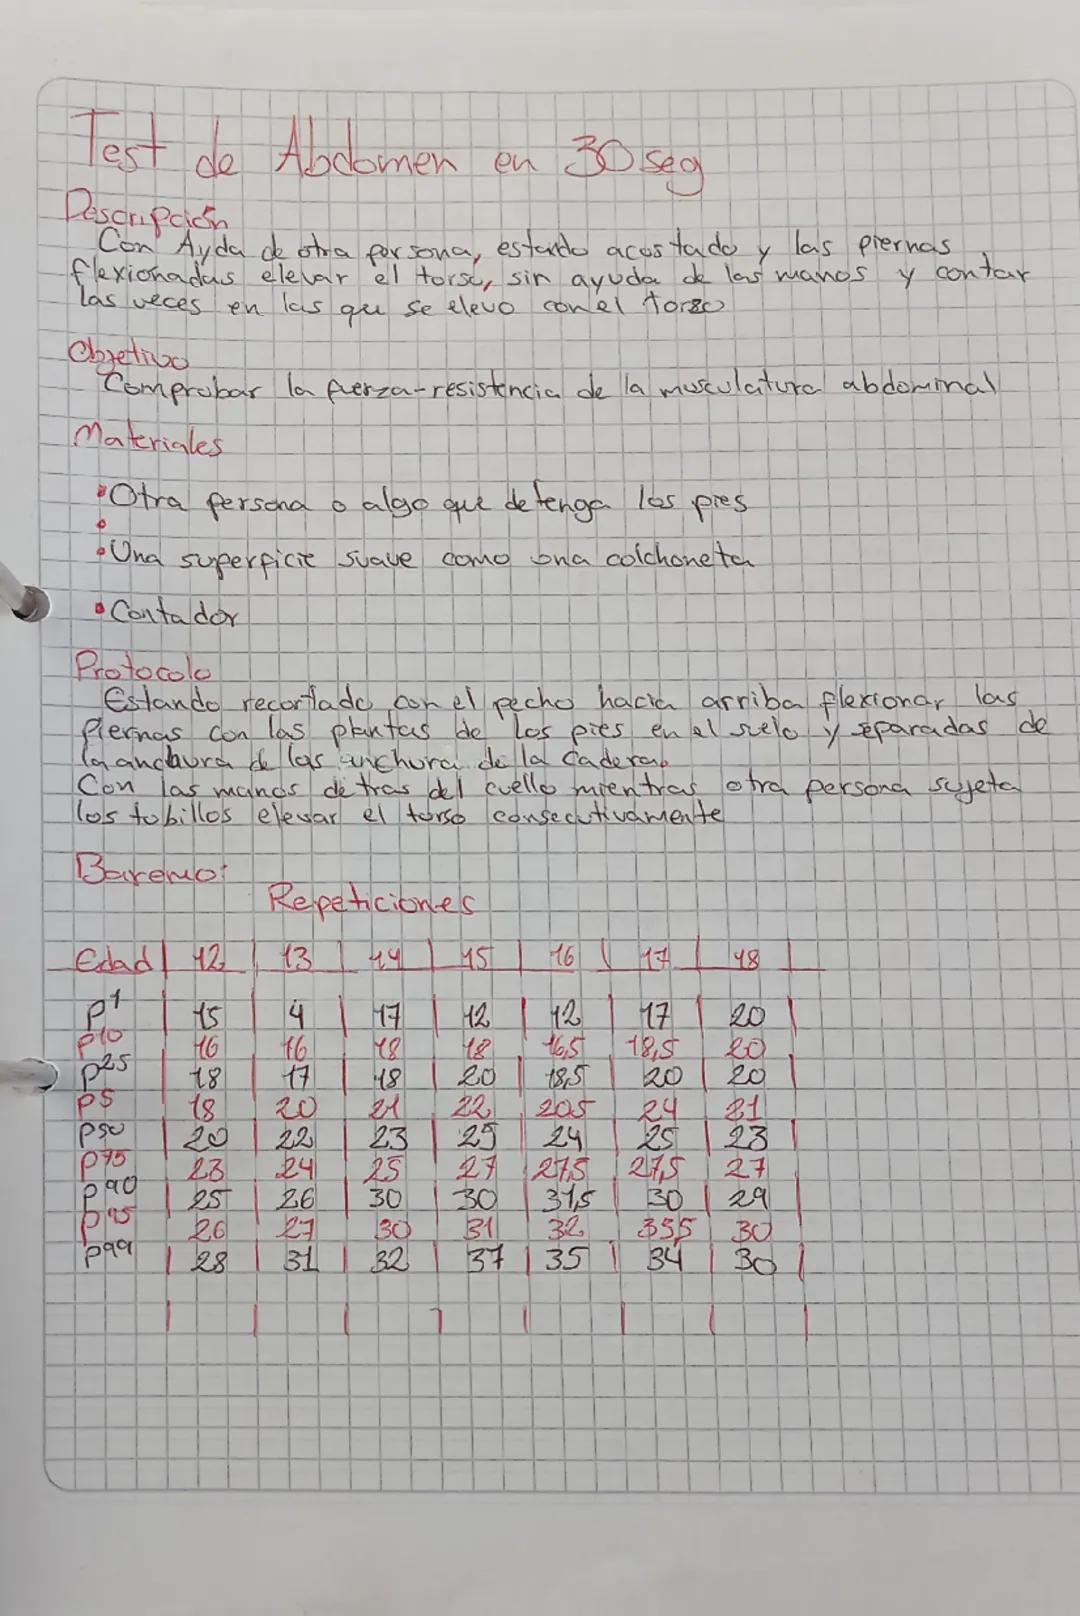 Test de Abdomen en 30 seg
Descripción
Con Ayda de otra persona, estando acostado y las piernas
flexionadas elevar el torso, sin ayuda de las manos y contar
las veces en las que se elevo con el torzo
Objetivo
Comprobar la fuerza-resistencia de la musculatura abdominal
Materiales
• Otra persona o algo que detenga los pies
•
• Una superficie suave como una colchoneta
• Contador
Protocolo
Estando recortado con el pecho hacia arriba flexionar las
piernas con las plantas de los pies en el suelo y separadas de
la anchura de las anchura de la cadera.
Con las manos detras del cuello mientras otra persona sujeta
los tobillos elevar el torso consecutivamente
Baremo:
Repeticiones
Edad | 12 | 13 | 14 | 15 | 16 | 17 | 18 |
P1 | 15 | 4 | 17 | 12 | 12 | 17 | 20 |
P10 16 16 18 18 16,5 18,5 20
P25 | 18 | 17 | 18 | 20 | 18,5 | 20 | 20 |
P5 18 20 21 22 20,5 24 21
P50 | 20 | 22 | 23 | 25 | 24 | 25 | 23 |
P75 23 24 25 27 27,5 27,5 27
P90 | 25 | 26 | 30 | 30 | 31,5 | 30 | 29 |
P95 26 27 30 31 32 33,5 30
P99 | 28 | 31 | 32 | 37 | 35 | 34 | 30 |